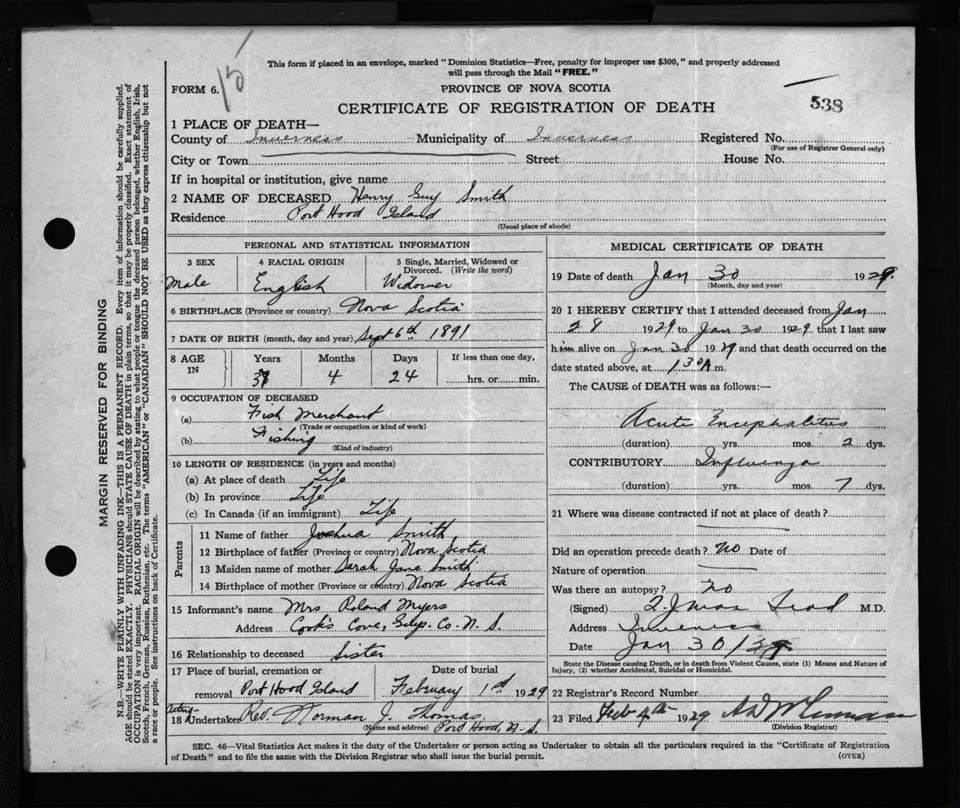 15
This form if placed in an envelope, marked "Dominion Statistics—Free, penalty for improper use $300," and properly addressed
will pass through the Mail "FREE."
FORM 6.
PROVINCE OF NOVA SCOTIA
CERTIFICATE OF REGISTRATION OF DEATH
538
1 PLACE OF DEATH—
County of Inverness Municipality of Inverness Registered No.
(For use of Registrar General only)
City or Town Street House No.
If in hospital or institution, give name
2 NAME OF DECEASED Henry Guy Smith
Residence Port Hood Island
(Usual place of abode)
PERSONAL AND STATISTICAL INFORMATION
3 SEX 4 RACIAL ORIGIN 5 Single, Married, Widowed or
Divorced. (Write the word)
Male English Widower
6 BIRTHPLACE (Province or country) Nova Scotia
7 DATE OF BIRTH (month, day and year) Sept 6th 1891
8 AGE IN Years Months Days If less than one day,
37 4 24 hrs. or min.
9 OCCUPATION OF DECEASED
(a) Fish Merchant
(Trade or occupation or kind of work)
(b) Fishing
(Kind of industry)
10 LENGTH OF RESIDENCE (in years and months)
(a) At place of death Life
(b) In province Life
(c) In Canada (if an immigrant) Life
Parents
11 Name of father Joshua Smith
12 Birthplace of father (Province or country) Nova Scotia
13 Maiden name of mother Sarah Jane Smith
14 Birthplace of mother (Province or country) Nova Scotia
15 Informant's name Mrs Roland Myers
Address Cook's Cove, Guys. Co. N. S.
16 Relationship to deceased Sister
17 Place of burial, cremation or Date of burial
removal Port Hood Island February 1st 1929
Acting
18 Undertaker Rev. Norman J. Thomas
(Name and address) Port Hood, N. S.
MEDICAL CERTIFICATE OF DEATH
19 Date of death Jan 30 1929.
(Month, day and year)
20 I HEREBY CERTIFY that I attended deceased from Jan
28 1929 to Jan 30 1929 that I last saw
him alive on Jan 30 1929 and that death occurred on the
date stated above, at 1 30 A m.
The CAUSE of DEATH was as follows:—
Acute Encephalitis
(duration) yrs. mos. 2 dys.
CONTRIBUTORY Influenza
(duration) yrs. mos. 7 dys.
21 Where was disease contracted if not at place of death?
Did an operation precede death? No Date of
Nature of operation
Was there an autopsy? No
(Signed) M.D.
Address Inverness
Date Jan 30/29
State the Disease causing Death, or in death from Violent Causes, state (1) Means and Nature of
Injury, (2) whether Accidental, Suicidal or Homicidal.
22 Registrar's Record Number
23 Filed Feb 4th 1929
(Division Registrar)
SEC. 46—Vital Statistics Act makes it the duty of the Undertaker or person acting as Undertaker to obtain all the particulars required in the "Certificate of Registration
of Death" and to file the same with the Division Registrar who shall issue the burial permit.
(OVER)
MARGIN RESERVED FOR BINDING
N.B.—WRITE PLAINLY WITH UNFADING INK—THIS IS A PERMANENT RECORD. Every item of information should be carefully supplied.
AGE should be stated EXACTLY. PHYSICIANS should STATE CAUSE OF DEATH in plain terms, so that it may be properly classified. Exact statement of
OCCUPATION is very important. RACIAL ORIGIN will be described by stating to what people or tongue the deceased person belonged, whether English, Irish,
Scotch, French, German, Russian, Ruthenian, etc. The terms "AMERICAN" or "CANADIAN" SHOULD NOT BE USED as they express citizenship but not
a race or people. See instructions on back of Certificate.